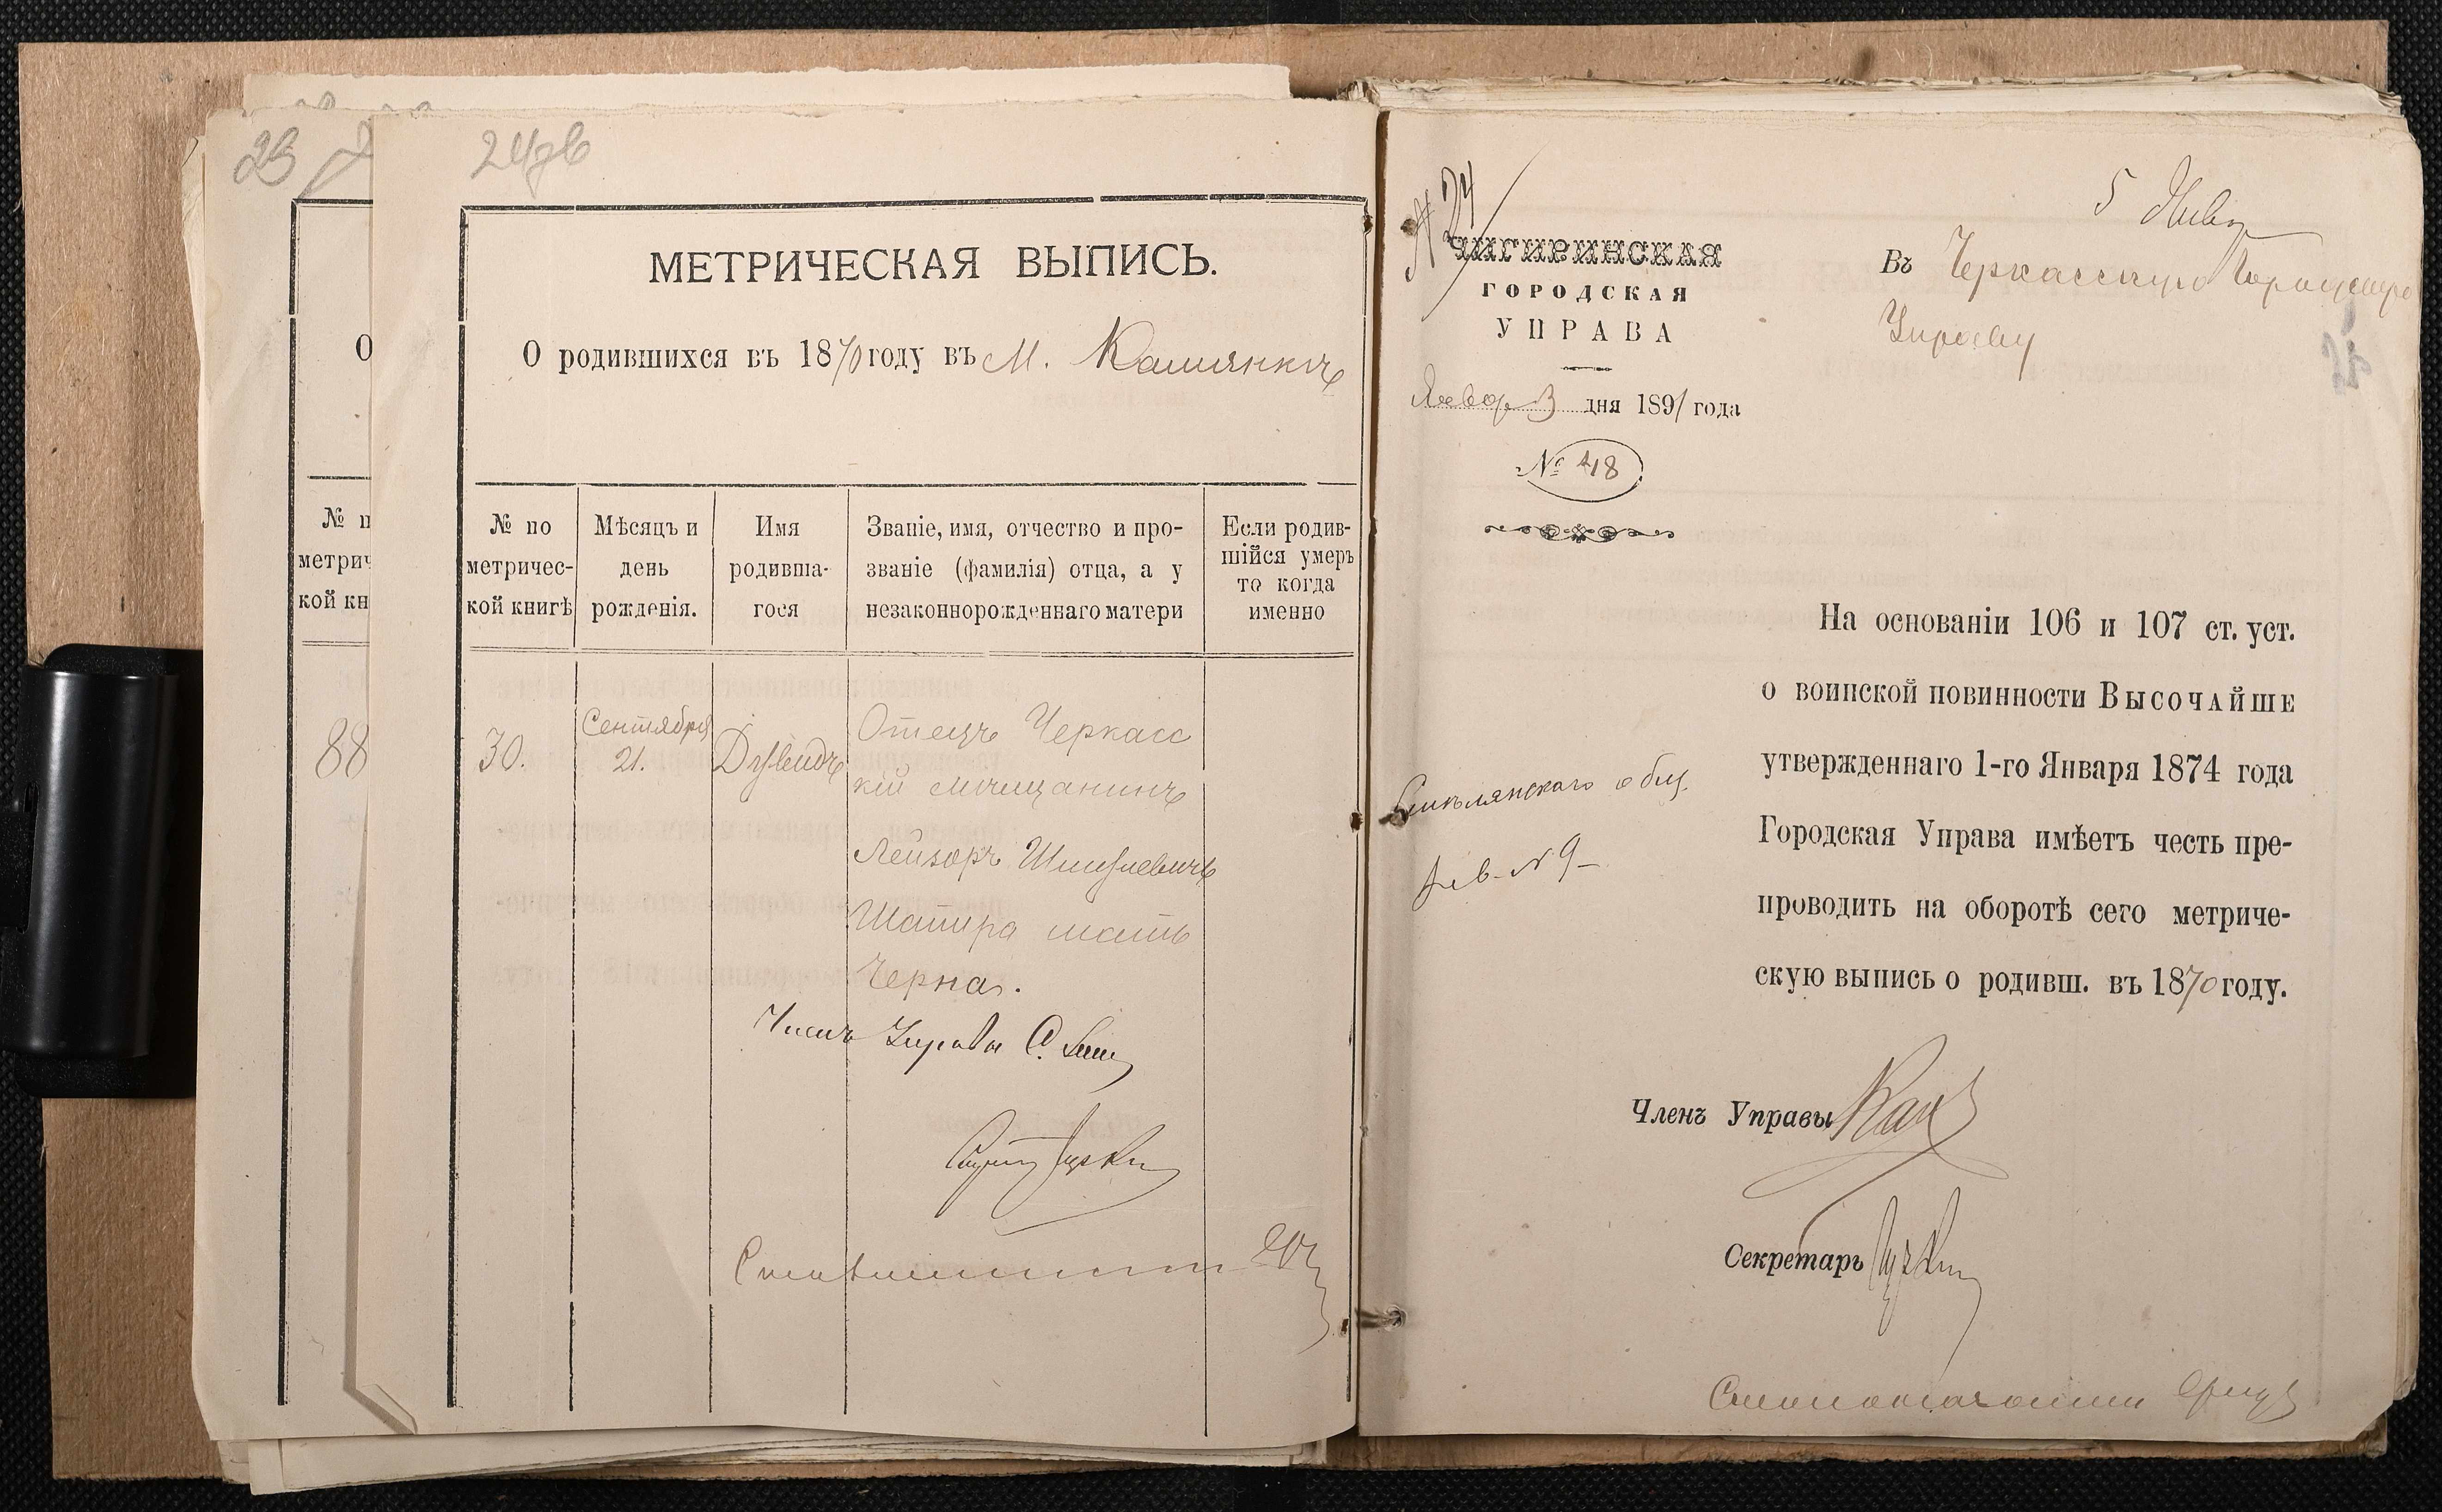 23
О
№ п
метрич
кой кн
88
24об
МЕТРИЧЕСКАЯ ВЫПИСЬ.
О родившихся въ 1870 году въ м. Камянкѣ
№ по метричес- кой книгѣ
Мѣсяцъ и день рожденія.
Имя родивша- гося
Званіе, имя, отчество и про- званіе (фамилія) отца, а у незаконнорожденнаго матери
Если родив- шійся умеръ то когда именно
30.
Сентября 21.
Дувидъ
Отецъ Черкасс
кій мѣщанинъ
Лейзоръ Шмулевичъ
Шапира мать
Черна.
Членъ Управы С.
№ 24
ЧИГИРИНСКАЯ
ГОРОДСКАЯ
УПРАВА
Январ 3 дня 1891 года
№ 418
5 Янв
Въ Черкасскую Городскую
Управу
На основаніи 106 и 107 ст. уст.
о воинской повинности ВЫСОЧАЙШЕ
утвержденнаго 1-го Января 1874 года
Городская Управа имѣетъ честь пре-
проводить на оборотѣ сего метриче-
скую выпись о родивш. въ 1870 году.
Смѣлянскаго общ.
рев. № 9
Членъ Управы
Секретарь